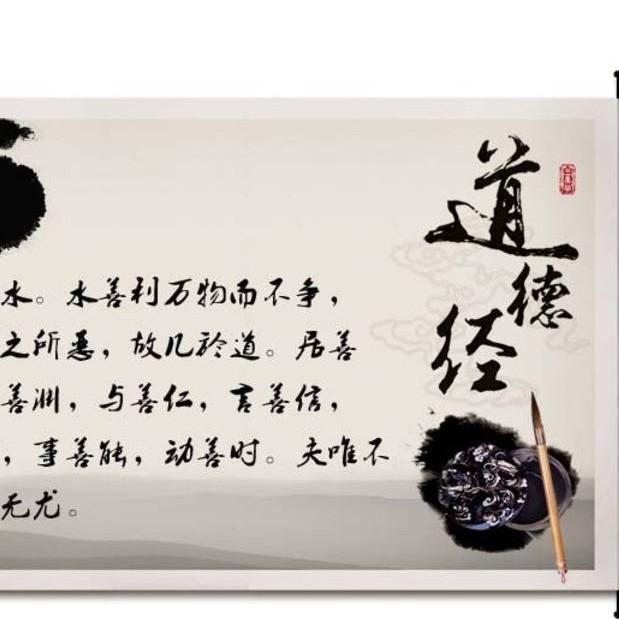 道德经
水。水善利万物而不争，
之所恶，故几於道。居善
善渊，与善仁，言善信，
，事善能，动善时。夫唯不
无尤。